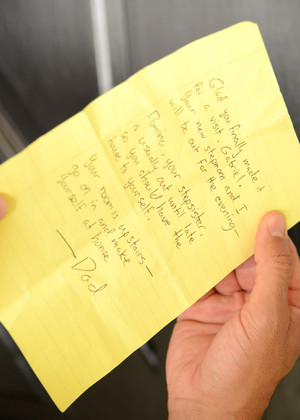 Glad you finally made it
for a visit, Gabriel.
Your new stepmom and I
will be out for the evening—
Dominno, your stepsister,
is usually out until late
so you should have the
house to yourself.
Your room is upstairs—
go on in and make
yourself at home
—Dad